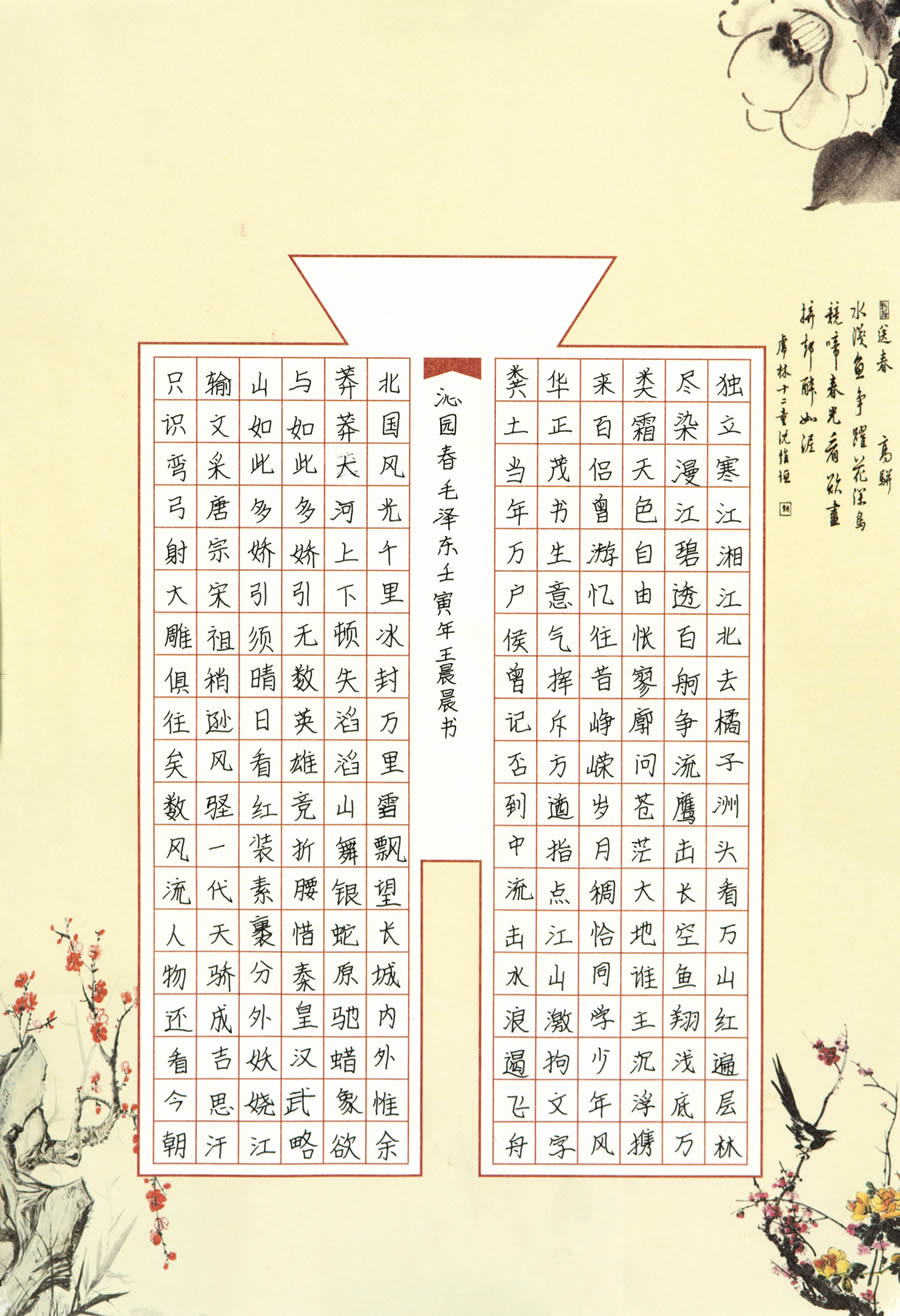 送春 高駢
水淺魚争躍花深鳥
競啼春光看欲盡
拚却醉如泥
独立寒江湘江北去橘子洲头看万山红遍层林
尽染漫江碧透百舸争流鹰击长空鱼翔浅底万
类霜天色自由怅寥廓问苍茫大地谁主沉浮携
来百侣曾游忆往昔峥嵘岁月稠恰同学少年风
华正茂书生意气挥斥方遒指点江山激拘文字
粪土当年万户侯曾记否到中流击水浪遏飞舟
沁园春毛泽东壬寅年王晨晨书
北国风光千里冰封万里雪飘望长城内外惟余
莽莽大河上下顿失滔滔山舞银蛇原驰蜡象欲
与如此多娇引无数英雄竞折腰惜秦皇汉武略
山如此多娇引须晴日看红装素裹分外妖娆江
输文采唐宗宋祖稍逊风骚一代天骄成吉思汗
只识弯弓射大雕俱往矣数风流人物还看今朝